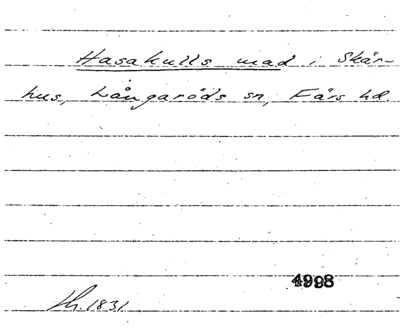 Hasakulls mad i Skär-
hus, Långaröds sn, Färs hd.
4998
th. 1831